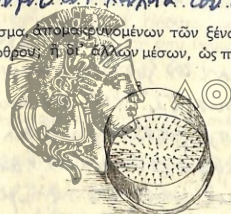 σμα, ἀπομακρυνομένων τῶν ξένο
όθρου, ἢ δι' ἄλλων μέσων, ὡς π
ΑΘ